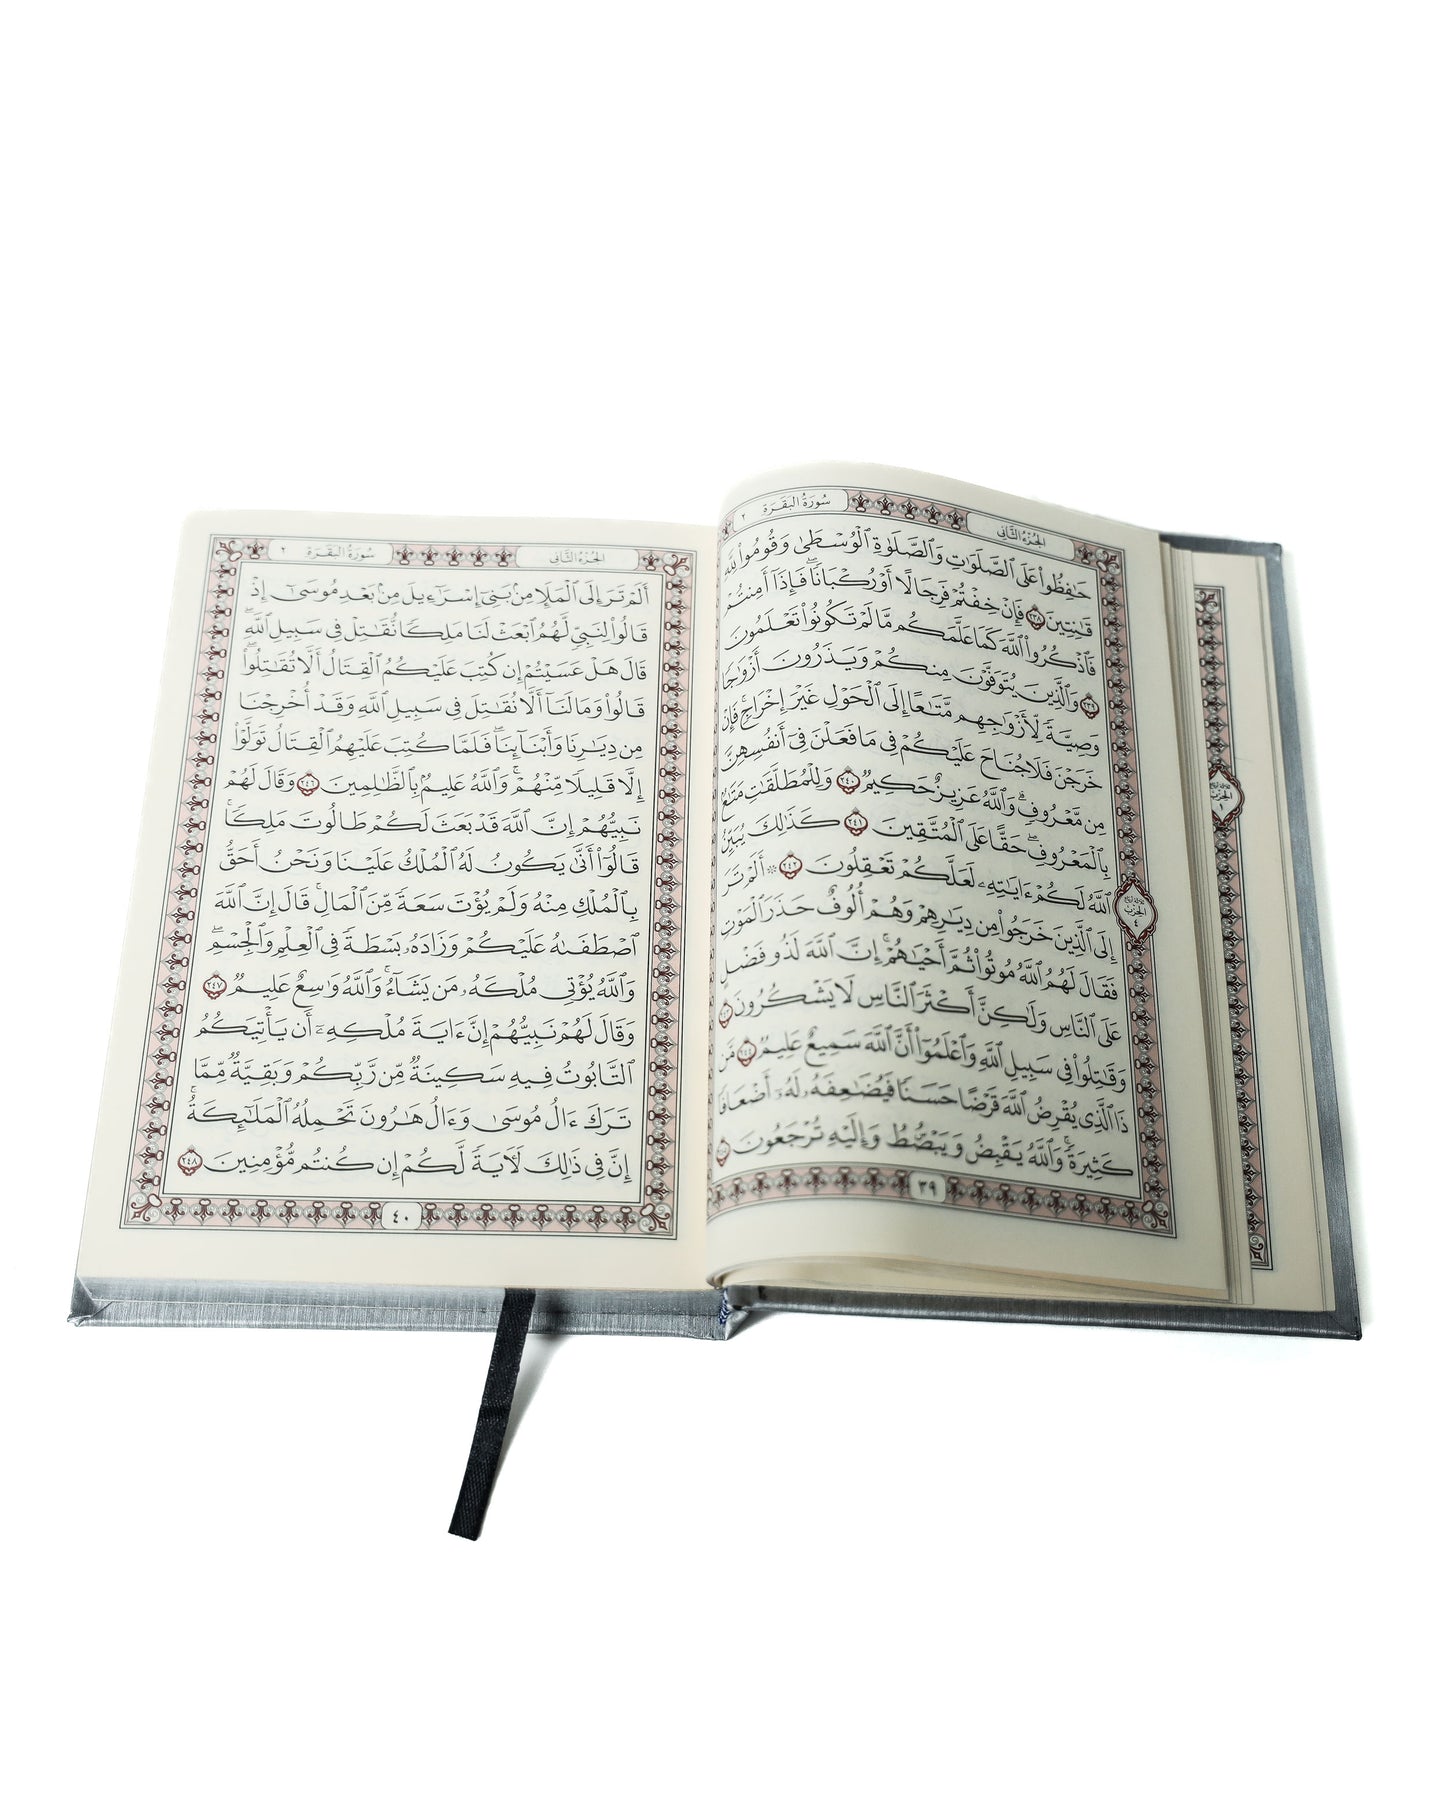 سُورَةُ البَقَرَةِ ٢
الجُزءُ الثَّانِي
حَٰفِظُوا۟ عَلَى ٱلصَّلَوَٰتِ وَٱلصَّلَوٰةِ ٱلْوُسْطَىٰ وَقُومُوا۟ لِلَّهِ
قَٰنِتِينَ ٢٣٨ فَإِنْ خِفْتُمْ فَرِجَالًا أَوْ رُكْبَانًا ۖ فَإِذَآ أَمِنتُمْ
فَٱذْكُرُوا۟ ٱللَّهَ كَمَا عَلَّمَكُم مَّا لَمْ تَكُونُوا۟ تَعْلَمُونَ
٢٣٩ وَٱلَّذِينَ يُتَوَفَّوْنَ مِنكُمْ وَيَذَرُونَ أَزْوَٰجًا
وَصِيَّةً لِّأَزْوَٰجِهِم مَّتَٰعًا إِلَى ٱلْحَوْلِ غَيْرَ إِخْرَاجٍ ۚ فَإِنْ
خَرَجْنَ فَلَا جُنَاحَ عَلَيْكُمْ فِى مَا فَعَلْنَ فِىٓ أَنفُسِهِنَّ
مِن مَّعْرُوفٍ ۗ وَٱللَّهُ عَزِيزٌ حَكِيمٌ ٢٤٠ وَلِلْمُطَلَّقَٰتِ مَتَٰعٌۢ
بِٱلْمَعْرُوفِ ۖ حَقًّا عَلَى ٱلْمُتَّقِينَ ٢٤١ كَذَٰلِكَ يُبَيِّنُ
ٱللَّهُ لَكُمْ ءَايَٰتِهِۦ لَعَلَّكُمْ تَعْقِلُونَ ٢٤٢ ۞ أَلَمْ تَرَ
إِلَى ٱلَّذِينَ خَرَجُوا۟ مِن دِيَٰرِهِمْ وَهُمْ أُلُوفٌ حَذَرَ ٱلْمَوْتِ
فَقَالَ لَهُمُ ٱللَّهُ مُوتُوا۟ ثُمَّ أَحْيَٰهُمْ ۚ إِنَّ ٱللَّهَ لَذُو فَضْلٍ
عَلَى ٱلنَّاسِ وَلَٰكِنَّ أَكْثَرَ ٱلنَّاسِ لَا يَشْكُرُونَ ٢٤٣
وَقَٰتِلُوا۟ فِى سَبِيلِ ٱللَّهِ وَٱعْلَمُوٓا۟ أَنَّ ٱللَّهَ سَمِيعٌ عَلِيمٌ ٢٤٤ مَّن
ذَا ٱلَّذِى يُقْرِضُ ٱللَّهَ قَرْضًا حَسَنًا فَيُضَٰعِفَهُۥ لَهُۥٓ أَضْعَافًا
كَثِيرَةً ۚ وَٱللَّهُ يَقْبِضُ وَيَبْصُۜطُ وَإِلَيْهِ تُرْجَعُونَ ٢٤٥
٣٩
الحِزْب
٤
الحِزْب
سُورَةُ البَقَرَةِ ٢
الجُزءُ الثَّانِي
أَلَمْ تَرَ إِلَى ٱلْمَلَإِ مِنۢ بَنِىٓ إِسْرَٰٓءِيلَ مِنۢ بَعْدِ مُوسَىٰٓ إِذْ
قَالُوا۟ لِنَبِىٍّ لَّهُمُ ٱبْعَثْ لَنَا مَلِكًا نُّقَٰتِلْ فِى سَبِيلِ ٱللَّهِ ۖ
قَالَ هَلْ عَسَيْتُمْ إِن كُتِبَ عَلَيْكُمُ ٱلْقِتَالُ أَلَّا تُقَٰتِلُوا۟ ۖ
قَالُوا۟ وَمَا لَنَآ أَلَّا نُقَٰتِلَ فِى سَبِيلِ ٱللَّهِ وَقَدْ أُخْرِجْنَا
مِن دِيَٰرِنَا وَأَبْنَآئِنَا ۖ فَلَمَّا كُتِبَ عَلَيْهِمُ ٱلْقِتَالُ تَوَلَّوْا۟
إِلَّا قَلِيلًا مِّنْهُمْ ۗ وَٱللَّهُ عَلِيمٌۢ بِٱلظَّٰلِمِينَ ٢٤٦ وَقَالَ لَهُمْ
نَبِيُّهُمْ إِنَّ ٱللَّهَ قَدْ بَعَثَ لَكُمْ طَالُوتَ مَلِكًا ۚ
قَالُوٓا۟ أَنَّىٰ يَكُونُ لَهُ ٱلْمُلْكُ عَلَيْنَا وَنَحْنُ أَحَقُّ
بِٱلْمُلْكِ مِنْهُ وَلَمْ يُؤْتَ سَعَةً مِّنَ ٱلْمَالِ ۚ قَالَ إِنَّ ٱللَّهَ
ٱصْطَفَىٰهُ عَلَيْكُمْ وَزَادَهُۥ بَسْطَةً فِى ٱلْعِلْمِ وَٱلْجِسْمِ ۖ
وَٱللَّهُ يُؤْتِى مُلْكَهُۥ مَن يَشَآءُ ۚ وَٱللَّهُ وَٰسِعٌ عَلِيمٌ ٢٤٧
وَقَالَ لَهُمْ نَبِيُّهُمْ إِنَّ ءَايَةَ مُلْكِهِۦٓ أَن يَأْتِيَكُمُ
ٱلتَّابُوتُ فِيهِ سَكِينَةٌ مِّن رَّبِّكُمْ وَبَقِيَّةٌ مِّمَّا
تَرَكَ ءَالُ مُوسَىٰ وَءَالُ هَٰرُونَ تَحْمِلُهُ ٱلْمَلَٰٓئِكَةُ ۚ
إِنَّ فِى ذَٰلِكَ لَءَايَةً لَّكُمْ إِن كُنتُم مُّؤْمِنِينَ ٢٤٨
٤٠